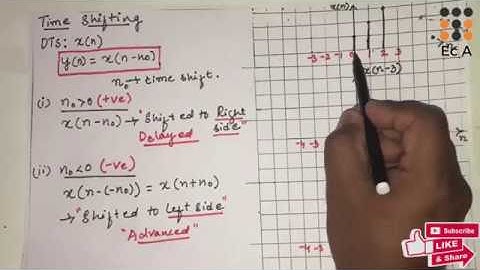 Time Shifting
DTS: x(n)
y(n) = x(n-n₀)
n₀→ time shift.
(i) n₀>0 (+ve)
x(n-n₀) → "Shifted to Right
side"
Delayed
(ii) n₀<0 (-ve)
x(n-(-n₀)) = x(n+n₀)
→ "Shifted to Left side"
"Advanced"
x(n)
-3 -2 -1 0 1 2 3
x(n-3)
n
-4 -3
-4 -3
EC A
Subscribe
LIKE
& Share